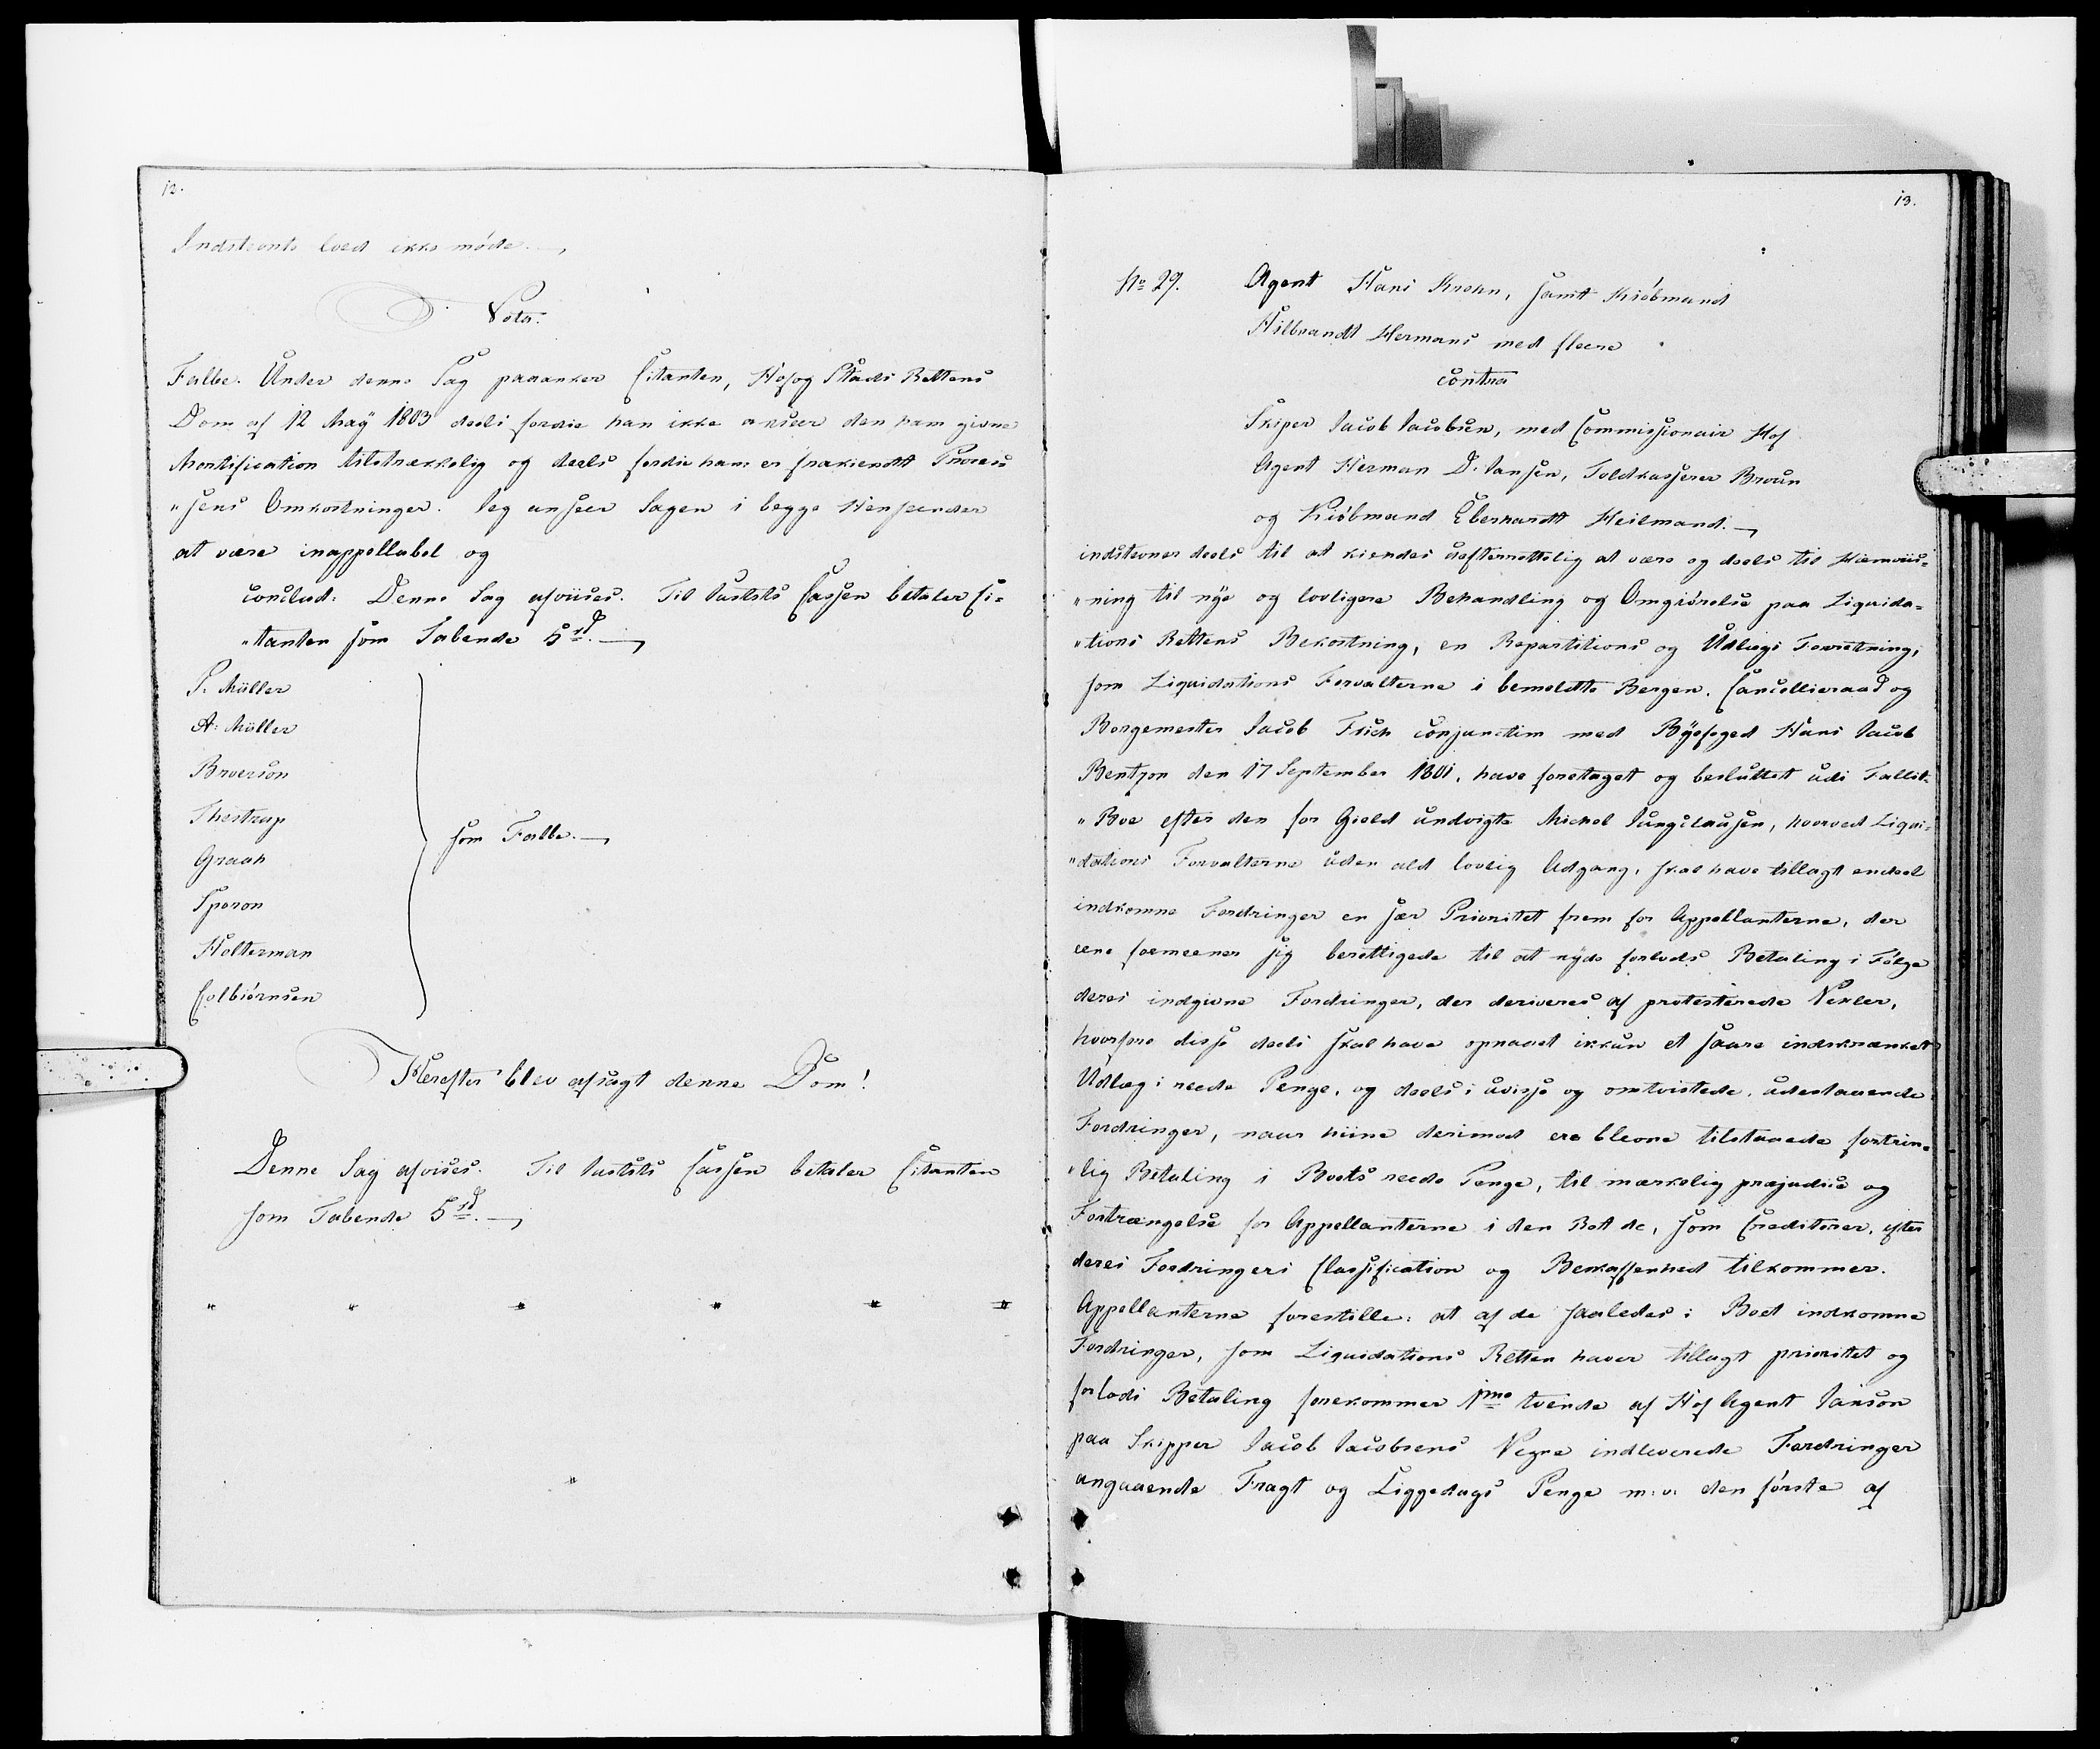 12.
Indstevnte lod ikke møde.
Vota.
Falbe. Under denne Sag paaanker Citanten, Hof og Stads Rettens
Dom af 12 May 1803 deels fordie han ikke anseer den ham givne
Mortification tilstrækkelig og deels fordie ham er frakiendt Proces
"sens Omkostninger. Jeg anseer Sagen i begge Henseender
at være inappellabel og
conclud: Denne Sag afviises. Til Justits Cassen betaler Ci-
"tanten som Tabende 5 rd.
P. Müller
A: Müller
Broerson
Thestrup
Graah
Speron
Holterman
Colbiørnsen
som Falbe.
Herefter blev afsagt denne Dom!
Denne Sag afvises. Til Justits Cassen betaler Citanten
som Tabende 5 rd.
13.
No 29. Agent Hans Krohn, samt Kiøbmand
Hilbrandt Hermans med fleere
contra
Skiper Jacob Jacobsen, med Commissionair Hof
Agent Herman D. Jansen, Toldkasserer Broun
og Kiøbmand Eberhardt Heilmand.
indstevner deels til at kiendes uefterrettelig at være og deels til Hiemviis-
"ning til nye og lovligere Behandling og Omgiørelse paa Liquida-
"tions Rettens Bekostning, en Repartitions og Udlægs Forretning,
som Liquidations Forvalterne i bemeldte Bergen. Cancellieraad og
Borgemester Jacob Frich conjunctim med Byefoged Hans Jacob
Bentzon den 17 September 1801. have foretaget og besluttet udi Fallit-
"Boe efter den for Gield undvigte Michel Jungclausen, hvorved Liqui-
"dations Forvalterne uden ald lovlig Adgang, skal have tillagt endeel
indkomne Fordringer en sær Prioritet frem for Appellanterne, der
ene formeener sig berettigede til at nyde forlods Betaling i Følge
deres indgivne Fordringer, der deriveres af protesterede Vexler,
hvorfore disse deels skal have opnaaet ikkun et saare indskrænket
Udlæg i reede Penge, og deels i uvisse og omtvistede, udestaaende
Fordringer, naar hiine derimod ere blevne tilstaaede fortrin-
"lig Betaling i Boets reede Penge, til mærkelig præjudice og
Fortrængelse for Appellanterne i den Ret de, som Creditorer, efter
deres Fordringers Classification og Beskaffenhed tilkommer.
Appellanterne forestille: at af de saaledes i Boet indkomne
Fordringer, som Liquidations Retten haver tillagt prioritet og
forlods Betaling forekommer 1mo tvende af Hof Agent Janson
paa Skipper Jacob Jacobsens Vegne indleverede Fordringer
angaaende Fragt og Liggedags Penge m: v: den første af